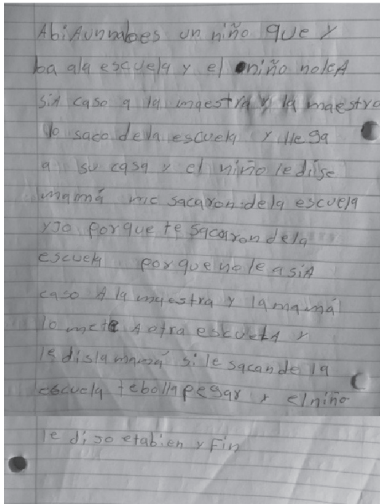 Abi Aunnabes un niño que y
ba ala escuela y el niño noleA
siA caso a la maestra y la maestra
lo saco dela escuela y llega
a su casa y el niño le dise
mamá me sacaron dela escuela
yjo porque te sacaron dela
escuela porque no le asiA
caso A la myestra y la mamá
lo mete A otra escuelA y
le disla mamá si le sacan de la
escuela teboll a pegar y el niño
le dijo etabien y Fin